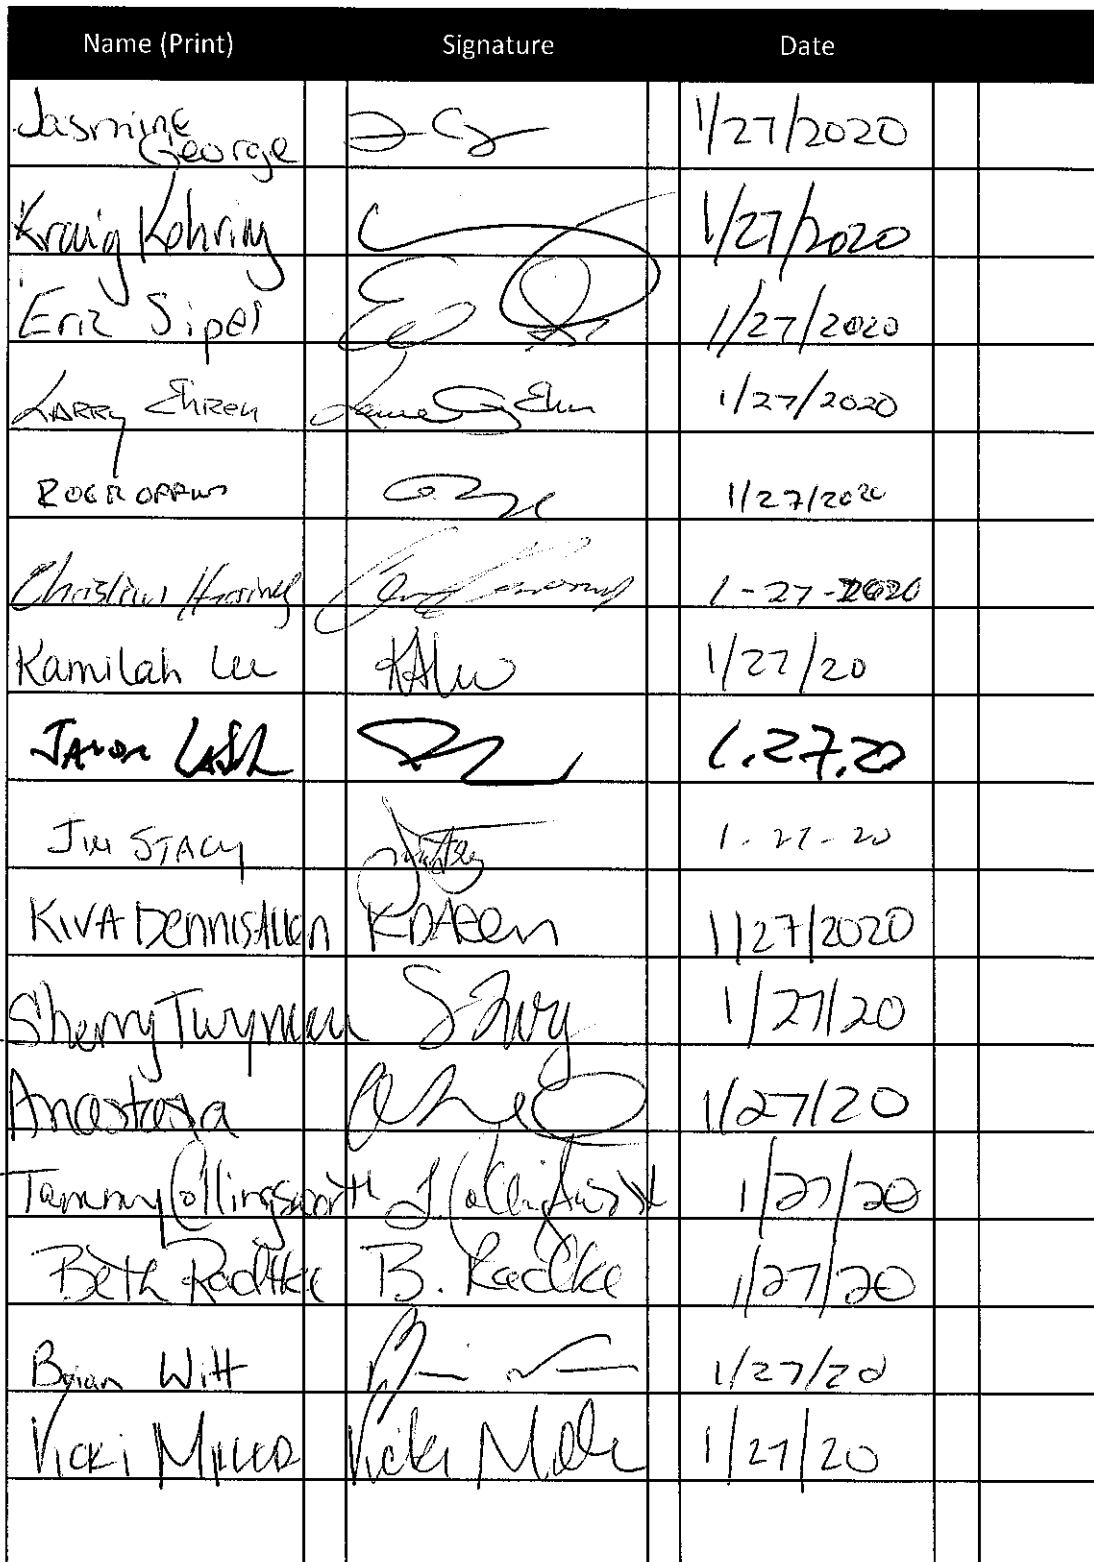 Name (Print) Signature Date
Jasmine George 1/27/2020
Kraig Kohring 1/27/2020
Eric Sipes 1/27/2020
Larry Ehren 1/27/2020
1/27/2020
1-27-2020
Kamilah Lee KALee 1/27/20
Jason Lash 1.27.20
Jim Stacy 1-27-20
Kiva DennisAllen KDAllen 1/27/2020
Sherry Twyman S Twy 1/27/20
Anastasia 1/27/20
Tammy Collingsworth T. Collingsworth 1/27/20
Beth Radtke B. Radtke 1/27/20
Brian Witt 1/27/20
Vicki Miller Vicki Miller 1/27/20